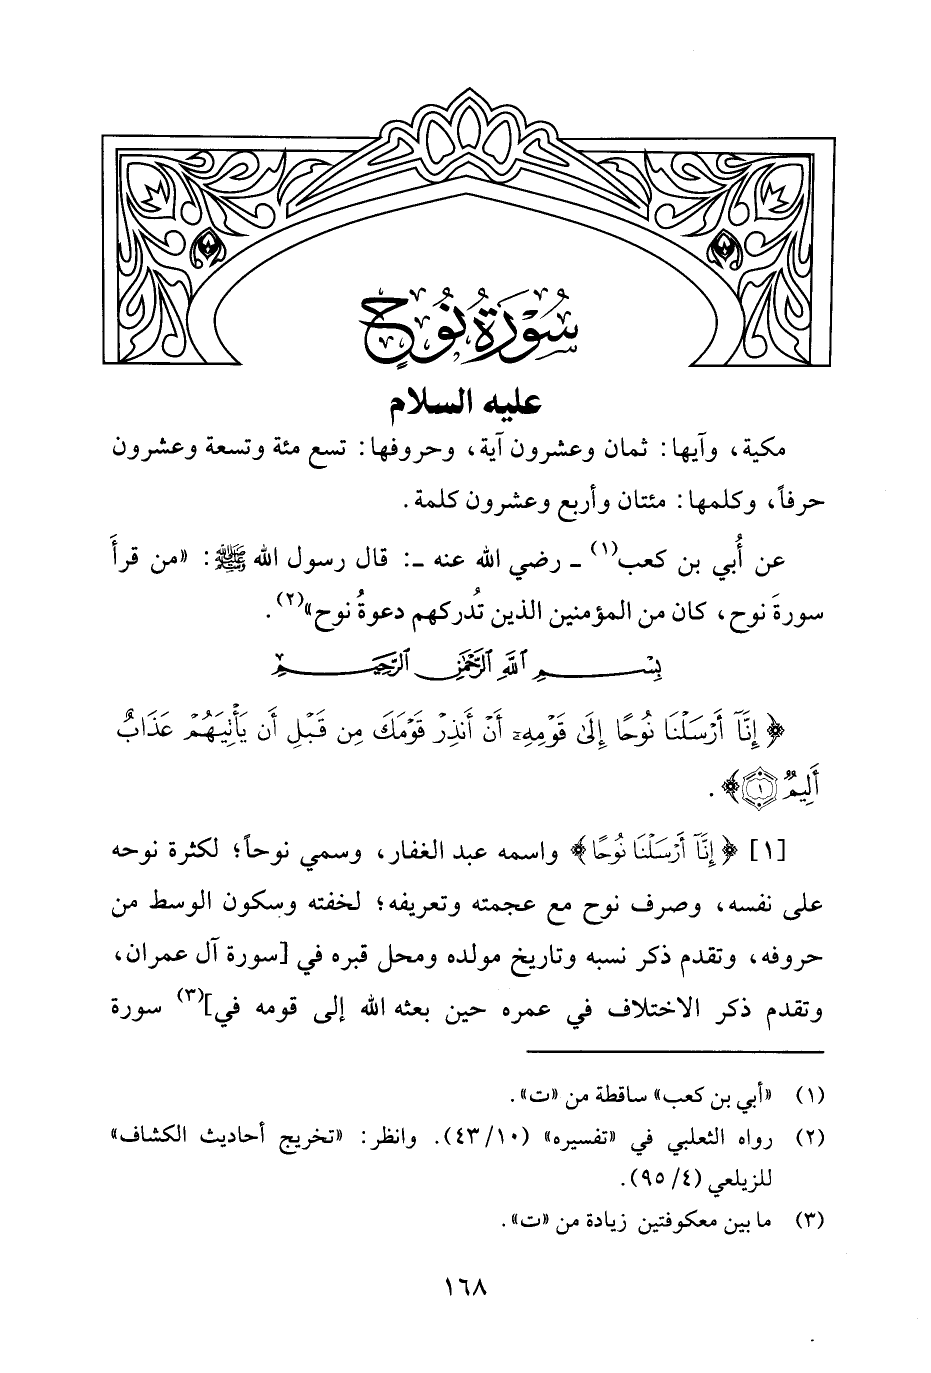 سُورَةُ نُوحٍ
عليه السلام
مكية، وآيها: ثمان وعشرون آية، وحروفها: تسع مئة وتسعة وعشرون
حرفاً، وكلمها: مئتان وأربع وعشرون كلمة.
عن أُبي بن كعب(١) ـ رضي الله عنه ـ: قال رسول الله ﷺ: «من قرأَ
سورةَ نوح، كان من المؤمنين الذين تُدركهم دعوةُ نوح»(٢).
بِسْمِ ٱللَّهِ ٱلرَّحْمَٰنِ ٱلرَّحِيمِ
﴿إِنَّآ أَرْسَلْنَا نُوحًا إِلَىٰ قَوْمِهِۦٓ أَنْ أَنذِرْ قَوْمَكَ مِن قَبْلِ أَن يَأْتِيَهُمْ عَذَابٌ
أَلِيمٌ ١﴾.
[١] ﴿إِنَّآ أَرْسَلْنَا نُوحًا﴾ واسمه عبد الغفار، وسمي نوحاً؛ لكثرة نوحه
على نفسه، وصرف نوح مع عجمته وتعريفه؛ لخفته وسكون الوسط من
حروفه، وتقدم ذكر نسبه وتاريخ مولده ومحل قبره في [سورة آل عمران،
وتقدم ذكر الاختلاف في عمره حين بعثه الله إلى قومه في](٣) سورة
(١) «أبي بن كعب» ساقطة من «ت».
(٢) رواه الثعلبي في «تفسيره» (١٠/ ٤٣). وانظر: «تخريج أحاديث الكشاف»
للزيلعي (٤/ ٩٥).
(٣) ما بين معكوفتين زيادة من «ت».
١٦٨